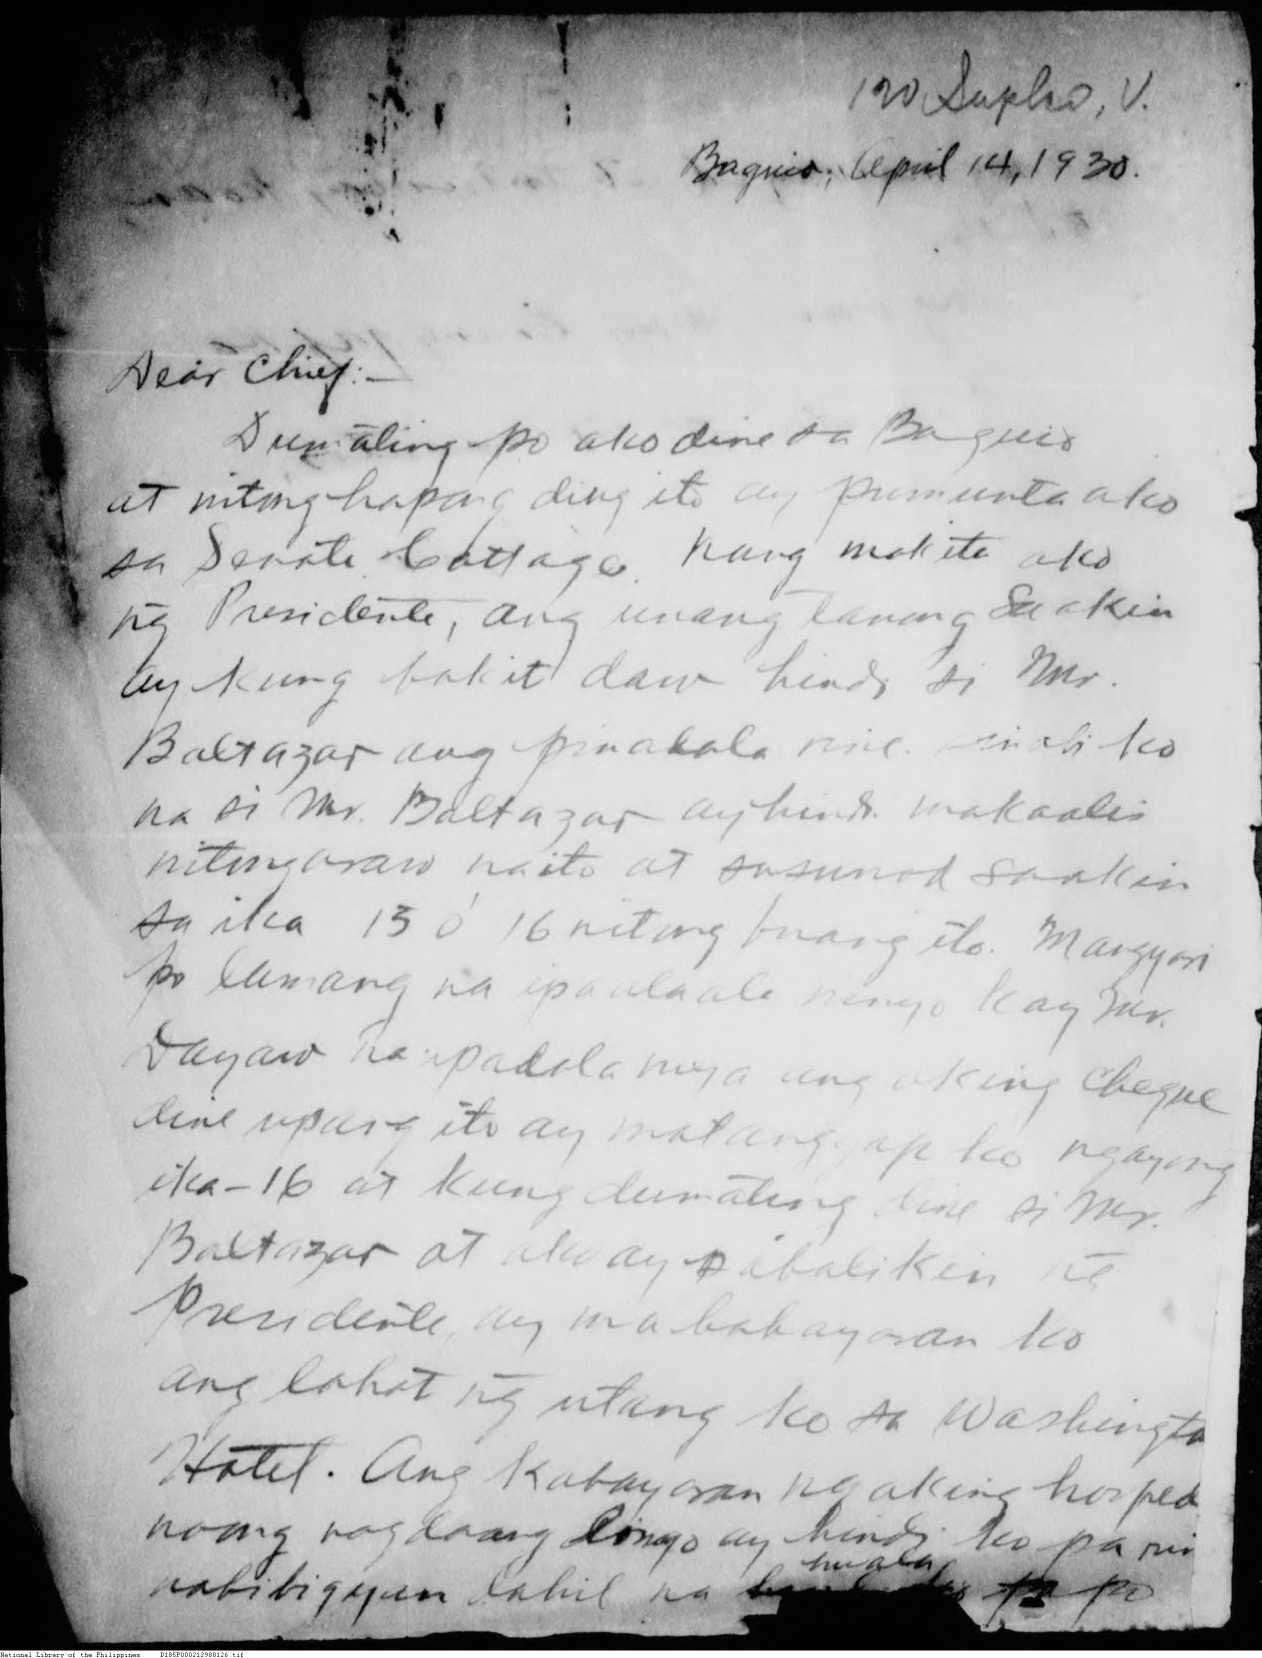 Baguio, April 14, 1930.
Dear Chief:—
Dumating po ako dine sa Baguio
at nitong hapong ding ito ay pumunta ako
sa Senate Cottage. Nang makita ako
ng Presidente, ang unang tanong sa akin
ay kung bakit daw hindi si Mr.
Baltazar ang pinadala rine. Sinabi ko
na si Mr. Baltazar ay hindi makaalis
nitong araw na ito at susunod sa akin
sa ika 15 ó 16 nitong buang ito. Mangyari
po lamang na ipaalaala ninyo kay Mr.
Dayaw na ipadala niya ang aking cheque
dine upang ito ay matanggap ko ngayong
ika-16 at kung dumating dine si Mr.
Baltazar at ako ay pabalikin ng
Presidente, ay mababayaran ko
ang lahat ng utang ko sa Washington
Hotel. Ang kabayaran ng aking hosped
noong nagdaang lingo ay hindi ko pa rin
nabibigyan dahil na wala
pa po
National Library of the Philippines D185P000212988126.tif